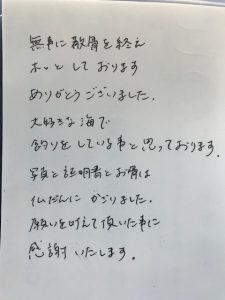 無事に散骨を終え
ホッとしております
ありがとうございました.
大好きな海で
釣りをしている事と思っております.
写真と証明書とお骨は
仏だんにかざりました.
願いを叶えて頂いた事に
感謝いたします。